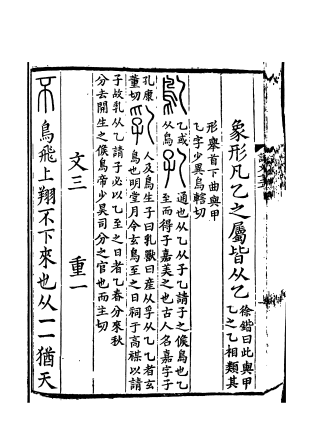 象形凡乙之屬皆从乙徐鍇曰此與甲
乙之乙相類其
形舉首下曲與甲
乙字少異烏轄切
乙或
从鳥
通也从乙从子乙請子之候鳥也乙
至而得子嘉美之也古人名嘉字子
孔康
董切
人及鳥生子曰乳獸曰産从孚从乙乙者玄
鳥也明堂月令玄鳥至之日祠于高禖以請
子故乳从乙請子必以乙至之日者乙春分來秋
分去開生之候鳥帝少昊司分之官也而主切
文三 重一
不 鳥飛上翔不下來也从一一猶天